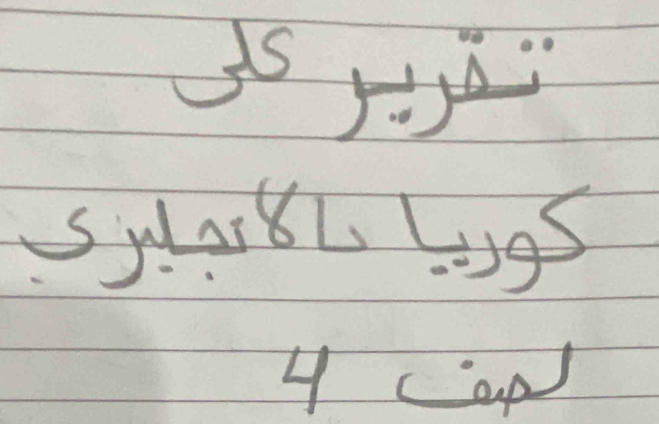 تقرير على
كوريا بالانجليزي
لصف 4